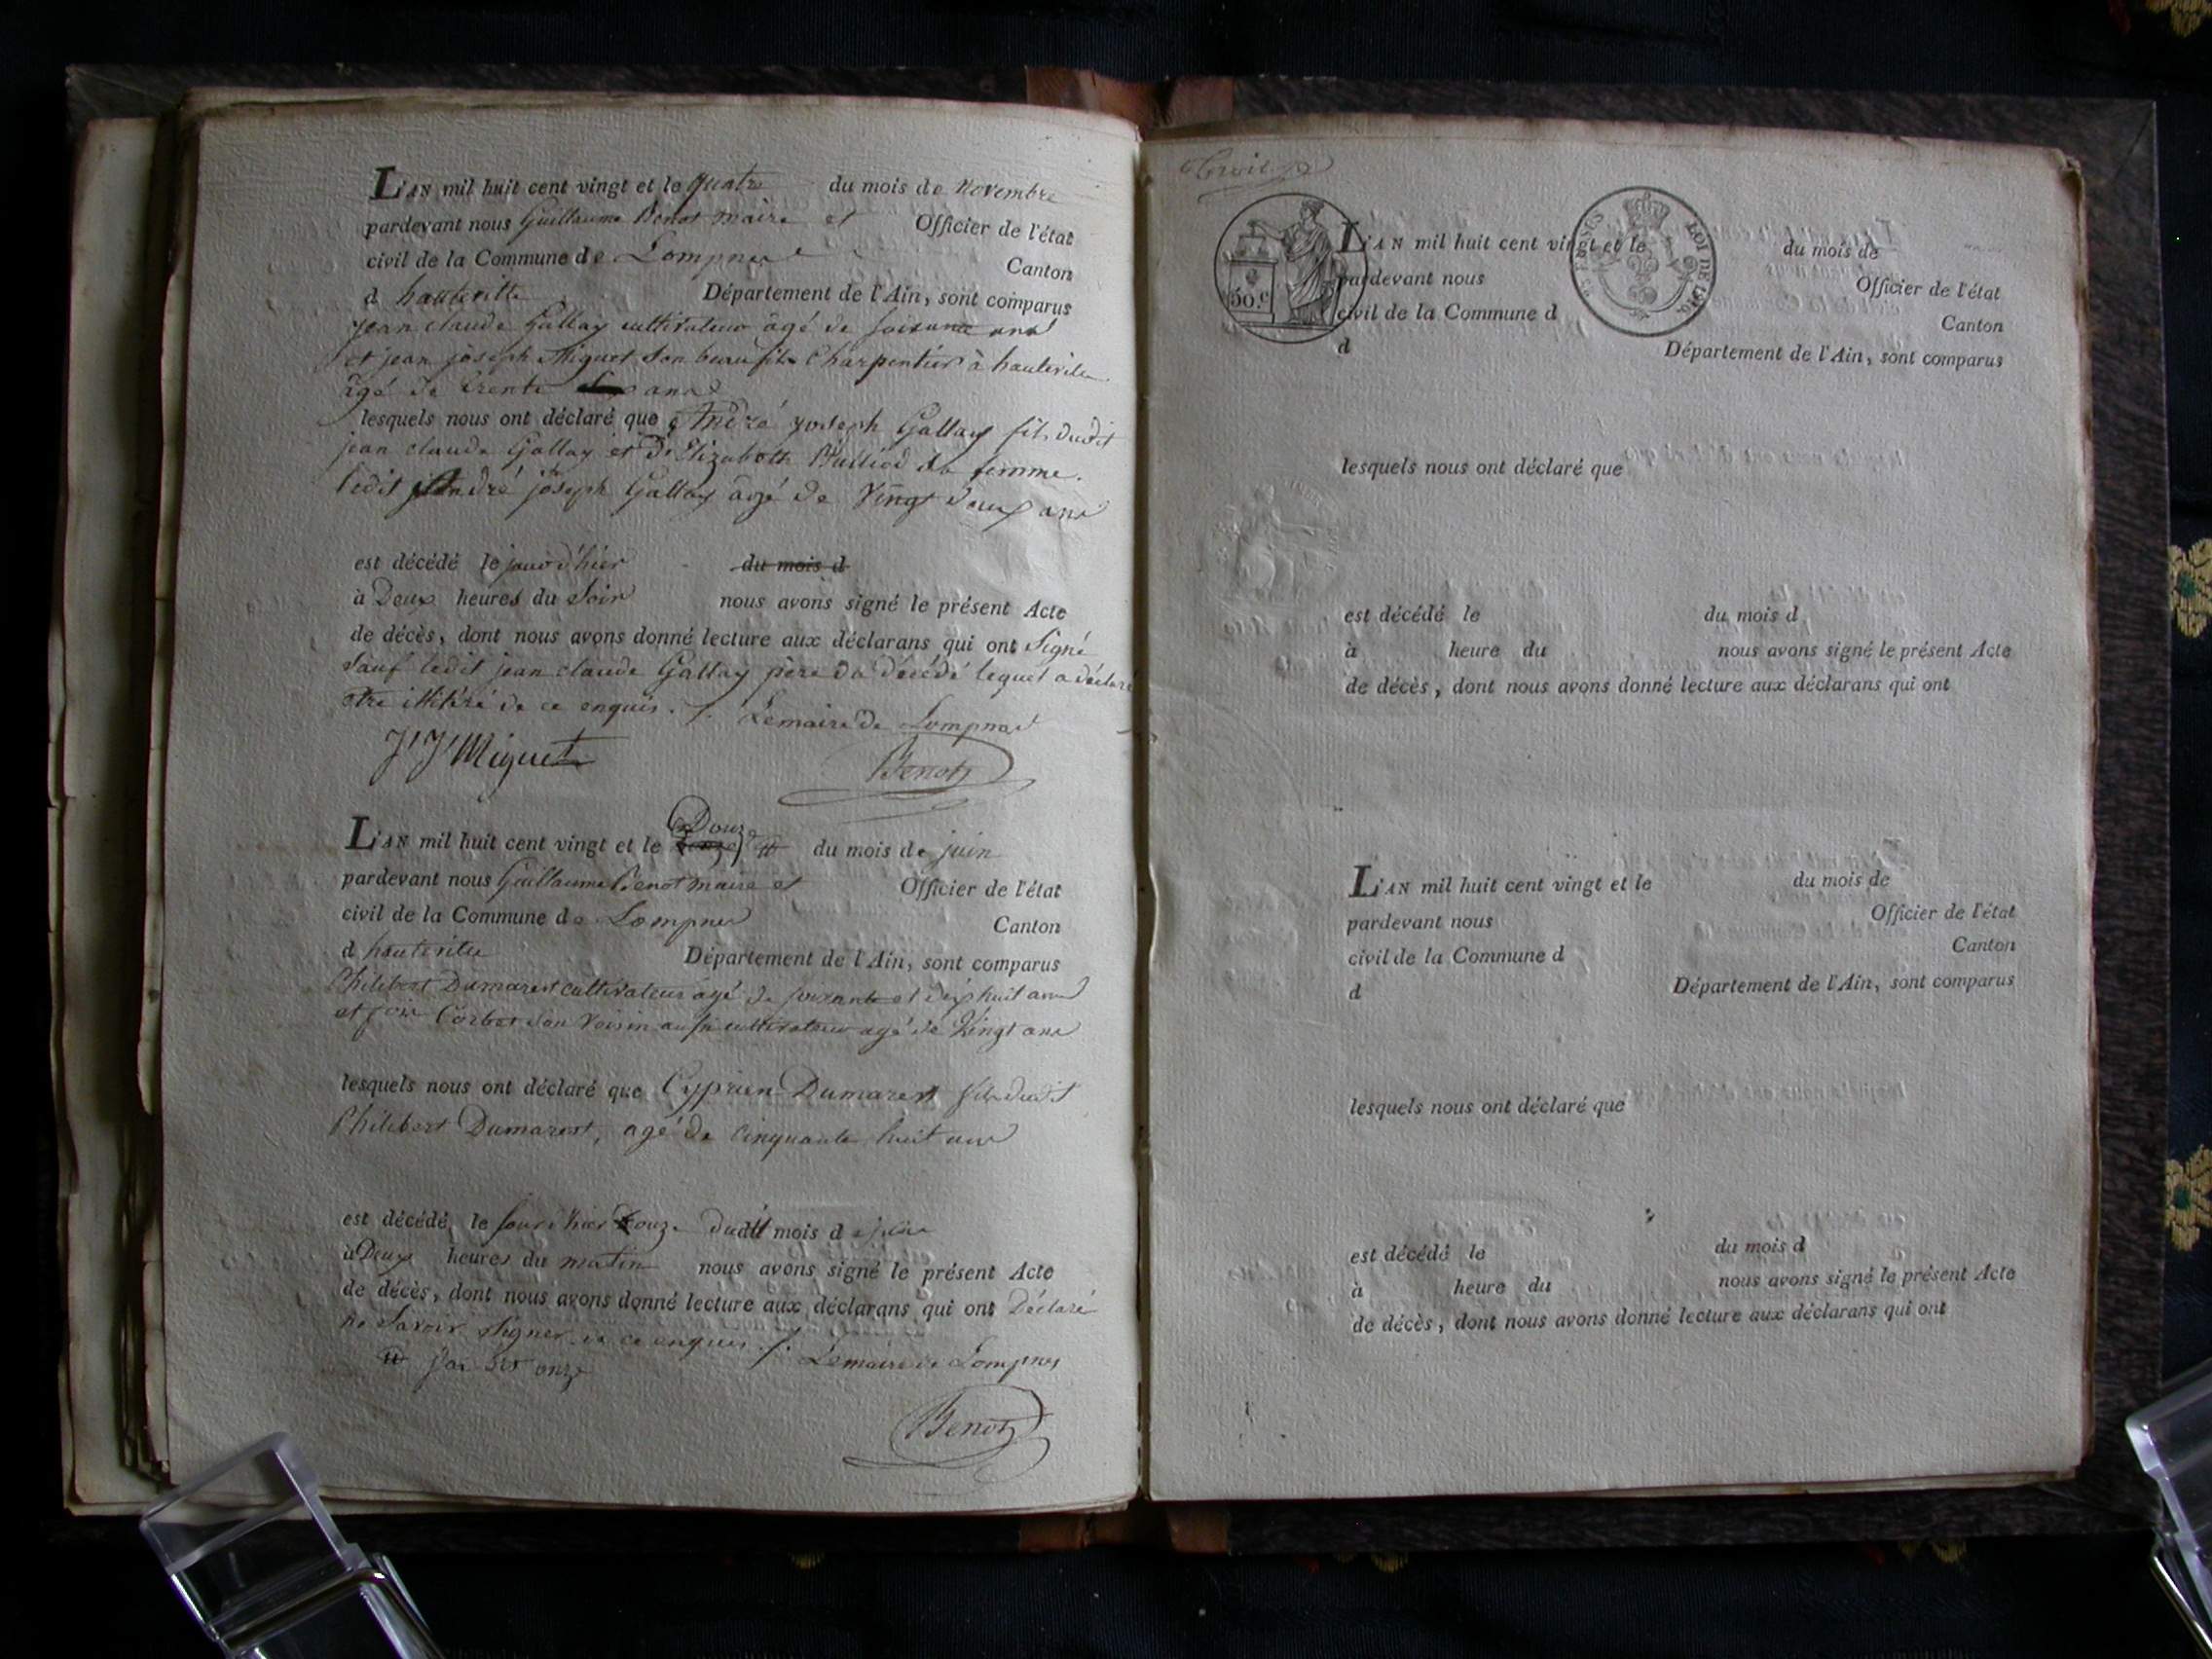 L'AN mil huit cent vingt et le quatre du mois de Novembre
pardevant nous Guillaume Benot maire et Officier de l'état
civil de la Commune de Lompnes Canton
d hauteville Département de l'Ain, sont comparus
jean claude Gallay cultivateur âgé de soixante ans
et jean joseph Miguet son beau fils Charpentier à hauteville
âgé de trente ans
lesquels nous ont déclaré que André joseph Gallay fils dudit
jean claude Gallay et d'Elizabeth sa femme.
ledit André joseph Gallay âgé de Vingt deux ans
est décédé le jour d'hier du mois d
à Deux heures du Soir nous avons signé le présent Acte
de décès, dont nous avons donné lecture aux déclarans qui ont Signé
Sauf ledit jean claude Gallay père du décédé lequel a déclaré
etre illitéré de ce enquis ./. Lemaire de Lompnes
J J Miguet Benot
L'AN mil huit cent vingt et le Douze du mois de juin
pardevant nous Guillaume Benot maire et Officier de l'état
civil de la Commune de Lompnes Canton
d hauteville Département de l'Ain, sont comparus
Philibert Dumarest cultivateur agé de soixante et dix huit ans
et Corbet son voisin aussi cultivateur agé de Vingt ans
lesquels nous ont déclaré que Cyprien Dumarest fils dudit
Philibert Dumarest, agé de cinquante huit ans
est décédé le jour d'hier onze dudit mois d
à Deux heures du matin nous avons signé le présent Acte
de décès, dont nous avons donné lecture aux déclarans qui ont Déclaré
ne Savoir Signer de ce enquis ./. Lemaire de Lompnes
onze
Benot
50.c
LOI DE 1816.
L'AN mil huit cent vingt et le du mois de
pardevant nous Officier de l'état
civil de la Commune d Canton
d Département de l'Ain, sont comparus
lesquels nous ont déclaré que
est décédé le du mois d
à heure du nous avons signé le présent Acte
de décès, dont nous avons donné lecture aux déclarans qui ont
L'AN mil huit cent vingt et le du mois de
pardevant nous Officier de l'état
civil de la Commune d Canton
d Département de l'Ain, sont comparus
lesquels nous ont déclaré que
est décédé le du mois d
à heure du nous avons signé le présent Acte
de décès, dont nous avons donné lecture aux déclarans qui ont